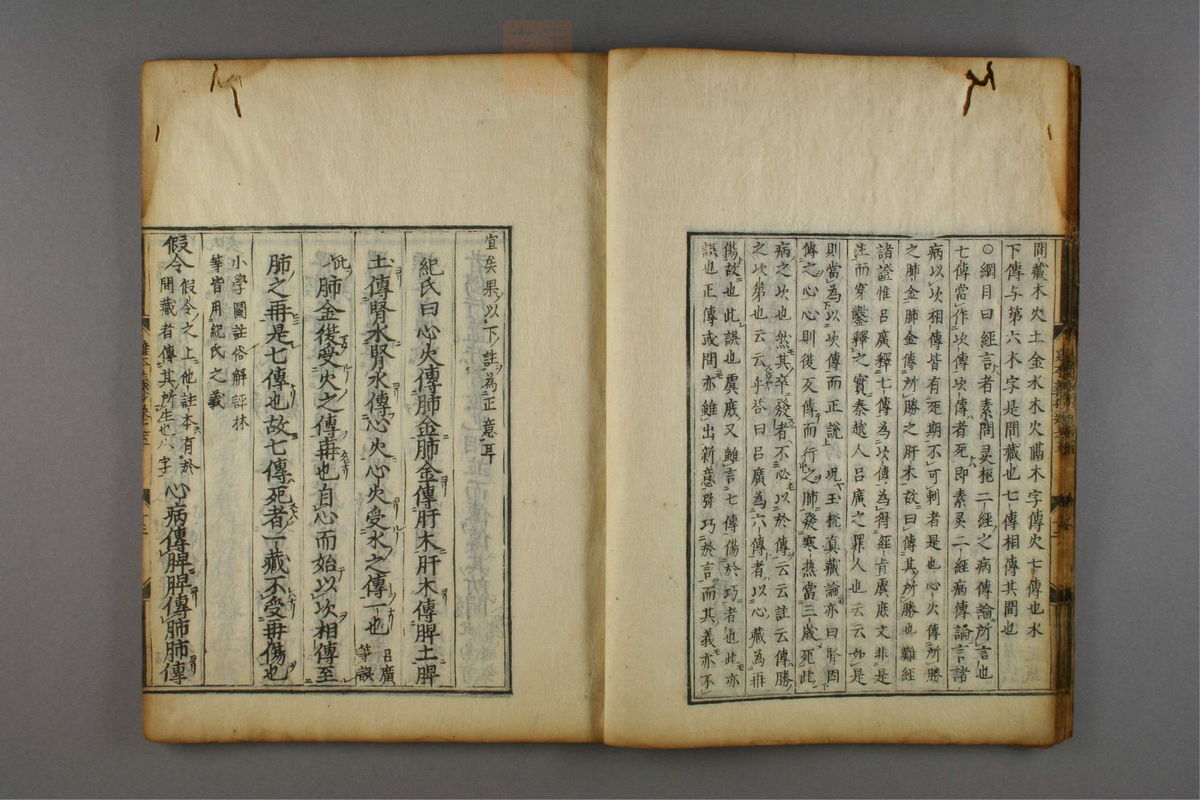 間藏木火土金水木火隔木字傳火七傳也水
下傳与第六木字是間藏也七傳相傳其間也
○網目曰經言者素問灵枢二經之病傳論所言也
七傳當作次傳次傳者死即素灵二經病傳論言諸
病以次相傳皆有死期不可刺者是也心火傳所勝
之肺金肺金傳所勝之肝木故曰傳其所勝也難經
諸證惟呂廣釋七傳為次傳為得經肯虞庶文非是
注而穿鑿釋之實秦越人呂廣之罪人也云云如是
則當為以次傳而正說况玉机真藏論亦曰腎因
傳之心心則後反傳而行之肺發寒熱當三歲死此
病之次也然其卒發者不必以於傳云云註云傳勝
之次第也云云乎答曰呂廣為六傳者以心藏為非
傷故也此誤也虞庶又雖言七傳傷於巧者也此亦
誤也正傳或問亦雖出新意殊巧於言而其義亦不
宜矣果以下註為正意耳
紀氏曰心火傳肺金肺金傳肝木肝木傳脾土脾
土傳腎水腎水傳心火心火受水之傳一也呂廣等誤
此肺金復受火之傳再也自心而始以次相傳至
肺之再是七傳也故七傳死者一藏不受再傷也
小學圖註俗解評林
等皆用紀氏之義
假令假令之上他註本有於間藏者傳其所生也八字心病傳脾脾傳肺肺傳